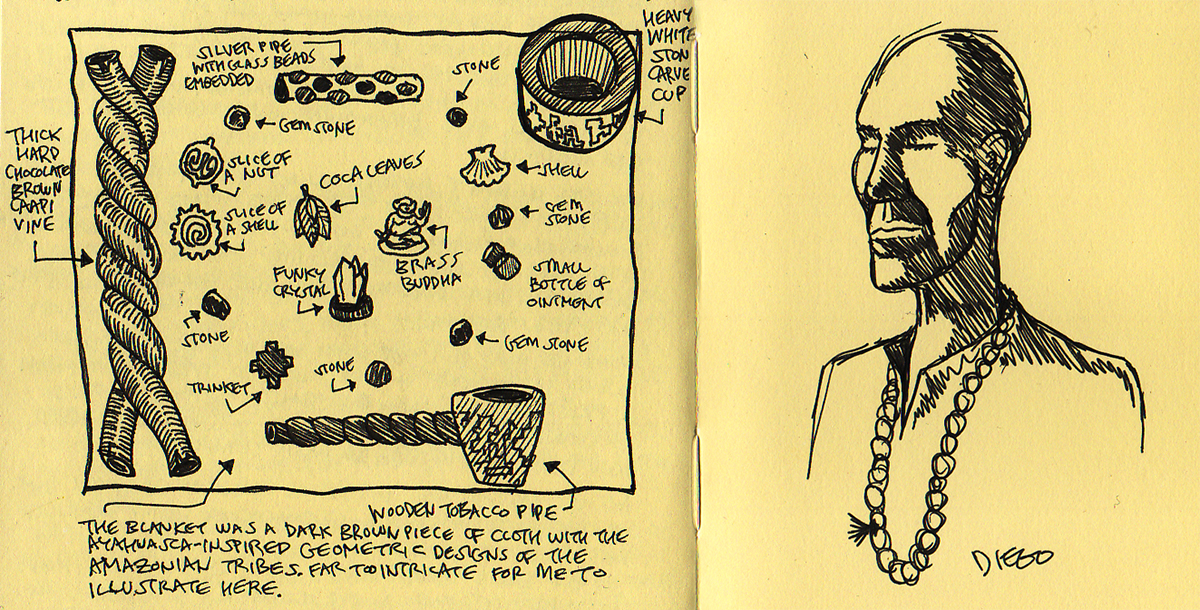 SILVER PIPE
WITH GLASS BEADS
EMBEDDED
STONE
HEAVY
WHITE
STON
CARVE
CUP
GEM STONE
THICK
HARD
CHOCOLATE
BROWN
CAAPI
VINE
SLICE OF
A NUT
COCA LEAVES
SHELL
SLICE OF
A SHELL
GEM
STONE
BRASS
BUDDHA
FUNKY
CRYSTAL
SMALL
BOTTLE OF
OINTMENT
STONE
GEM STONE
TRINKET
STONE
WOODEN TOBACCO PIPE
THE BLANKET WAS A DARK BROWN PIECE OF CLOTH WITH THE
AYAHUASCA-INSPIRED GEOMETRIC DESIGNS OF THE
AMAZONIAN TRIBES. FAR TO INTRICATE FOR ME TO
ILLUSTRATE HERE.
DIEGO